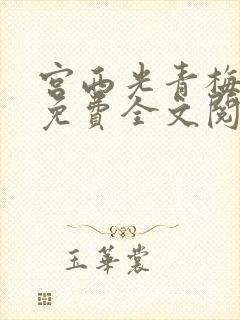 宫西光青梅
免費全文閱
玉華裳